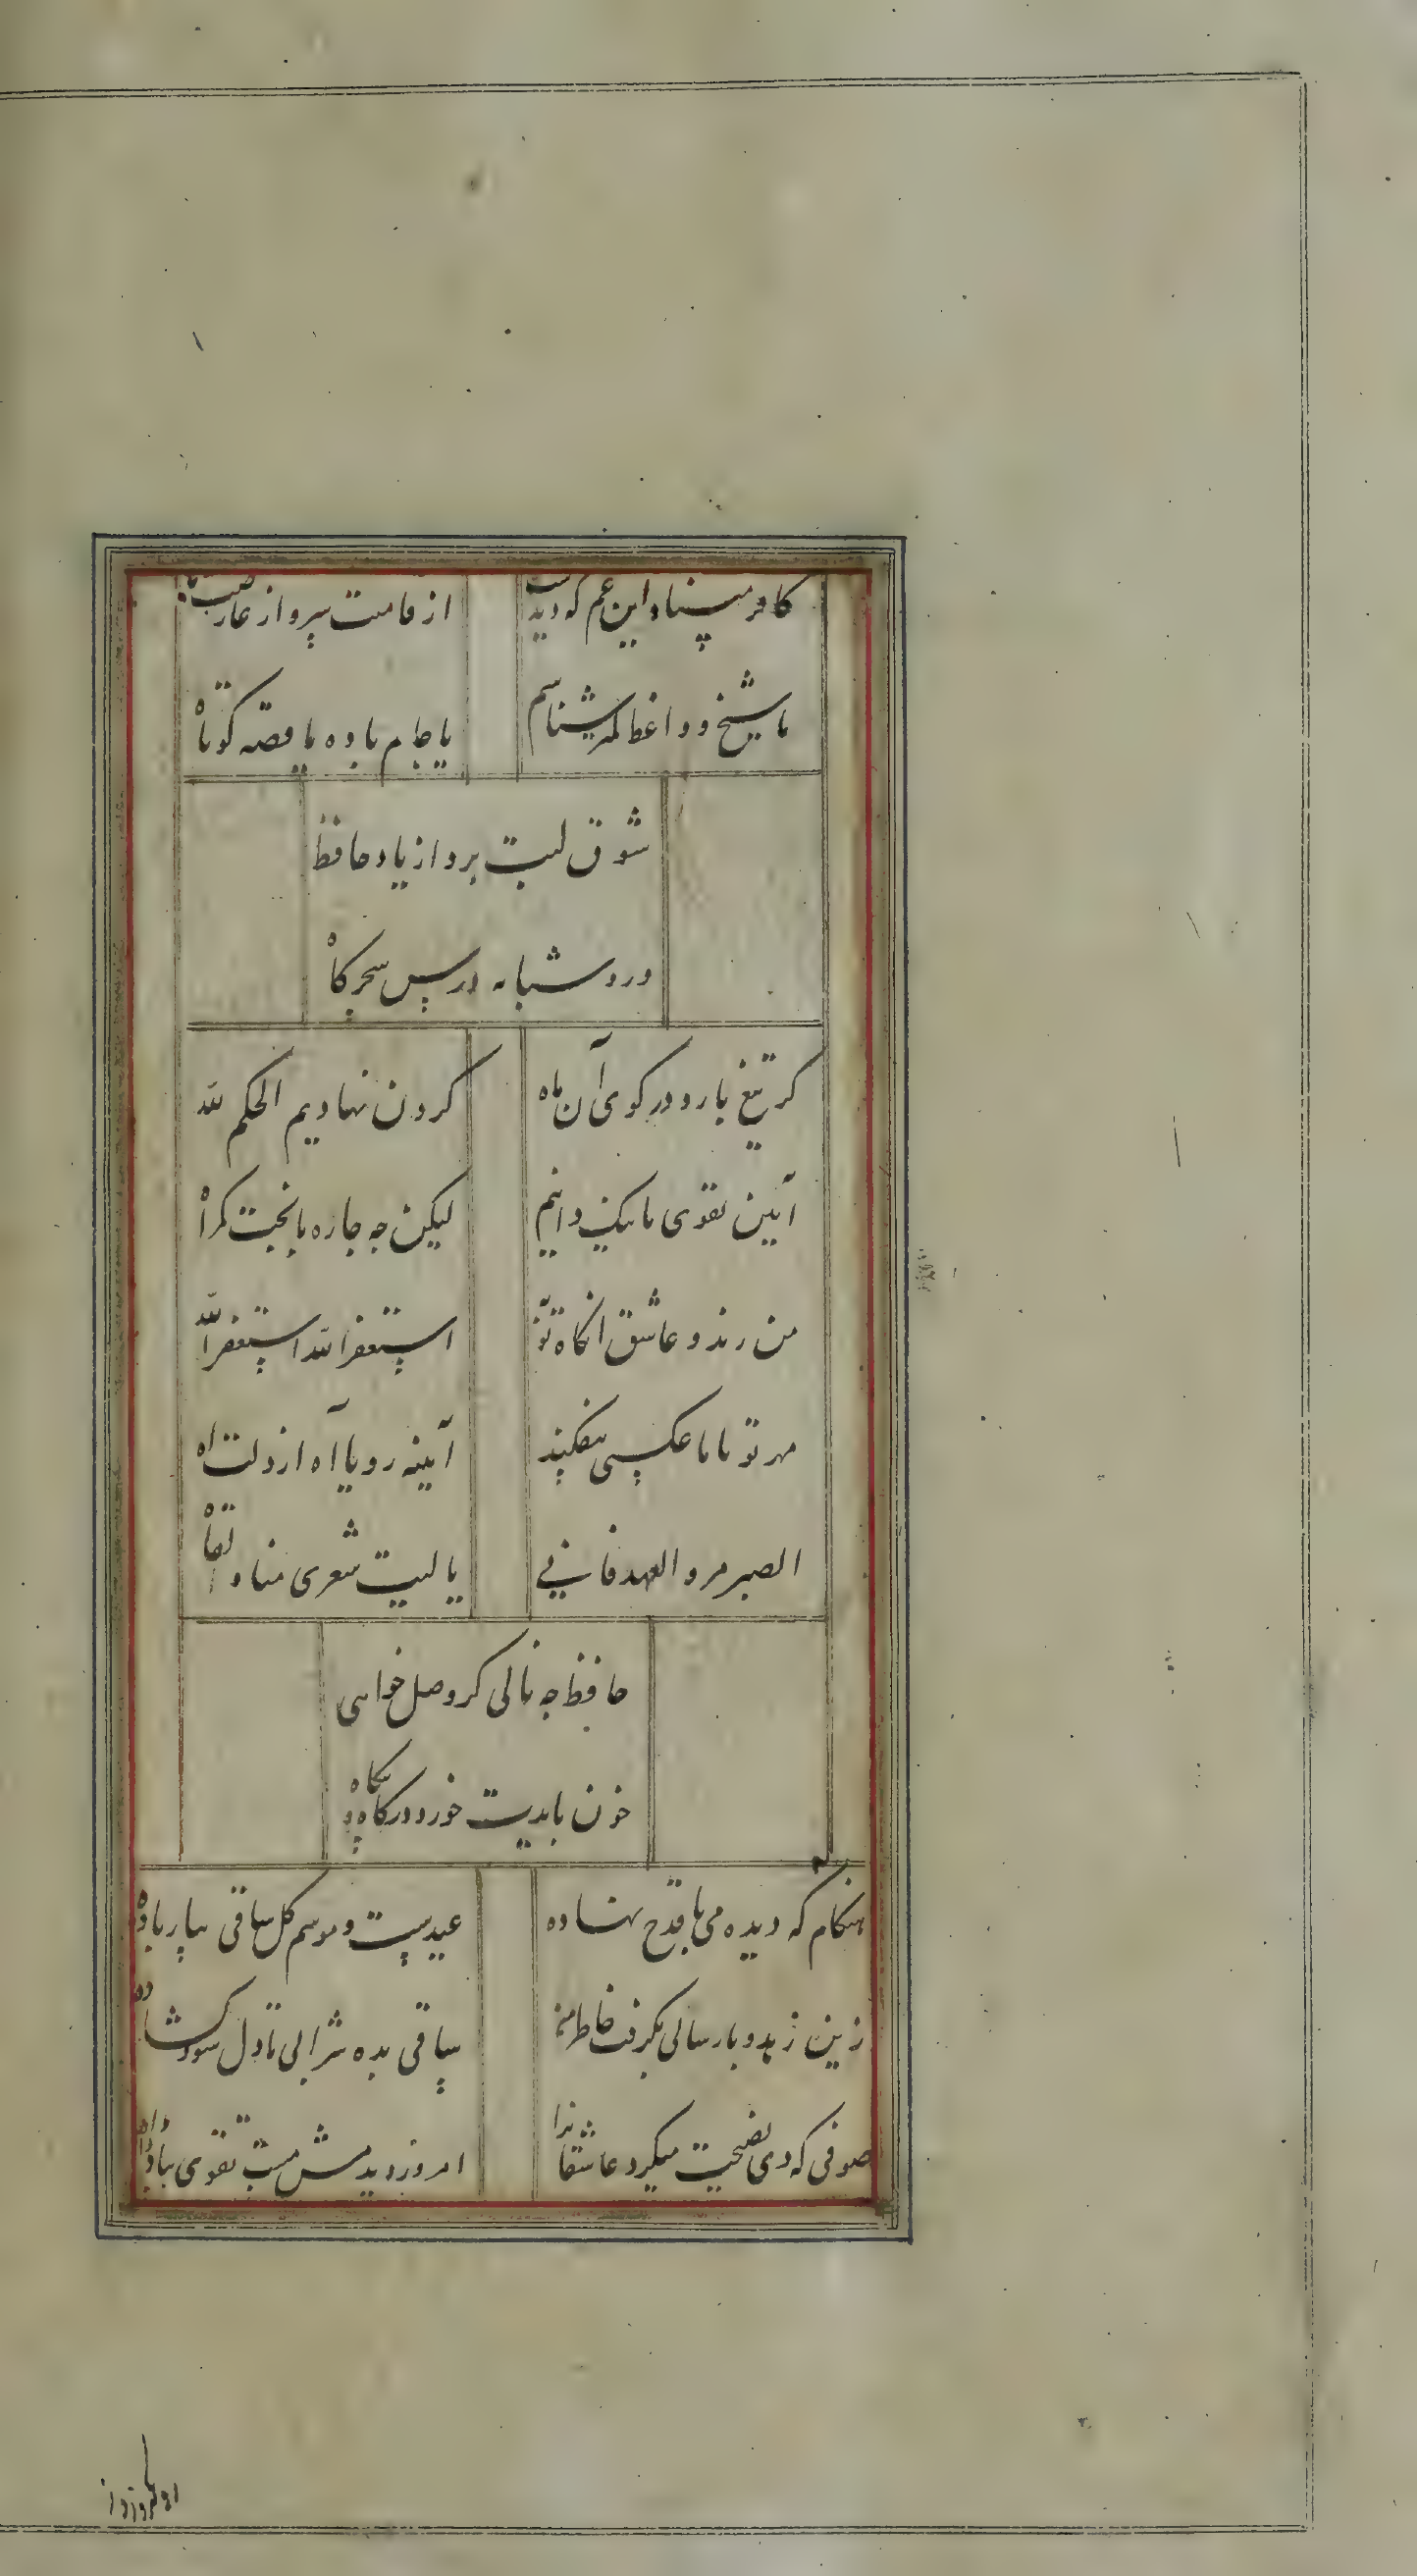 کافر مبیناد این غم که دیدست از قامتت سرو از عارضت ماه
ما شیخ و واعظ کمتر شناسیم یا جام باده یا قصه کوتاه
شوق لبت برد از یاد حافظ
ورد شبانه درس سحرکاه
کر تیغ بارد در کوی آن ماه کردن نهادیم الحکم لله
آیین تقوی ما نیک دانیم لیکن چه چاره با بخت کمراه
من رند و عاشق انکاه توبه استغفرالله استغفرالله
مهر تو با ما عکسی نیفکند آیینه رویا آه از دلت اه
الصبر مر و العهد فانی یا لیت شعری متاه لقاه
حافظ چه نالی کر وصل خواهی
خون بایدت خورد در کاه و بیکاه
هنکام که دیده می با قدح نهاده عیدست و موسم کل ساقی بیار باده
زین زهد و پارسایی بکرفت خاطر من ساقی بده شرابی تا دل شود کشاده
صوفی که دی نصیحت میکرد عاشقانرا امروز دیدمش مست تقوی بباد داده